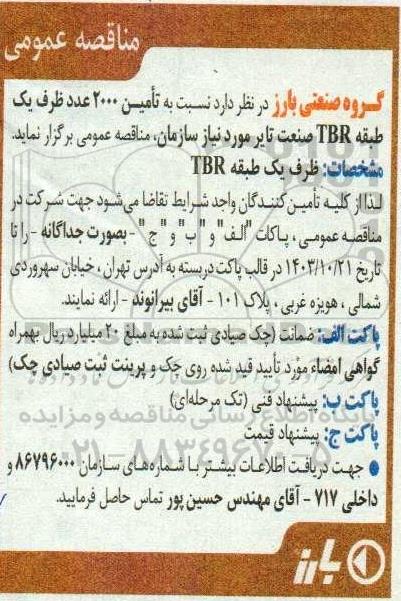 مناقصه عمومی
گروه صنعتی بارز در نظر دارد نسبت به تأمین ۲۰۰۰ عدد ظرف یک
طبقه TBR صنعت تایر مورد نیاز سازمان، مناقصه عمومی برگزار نماید.
مشخصات: ظرف یک طبقه TBR
لذا از کلیه تأمین کنندگان واجد شرایط تقاضا می‌شود جهت شرکت در
مناقصه عمومی، پاکات "الف" و "ب" و "ج" - بصورت جداگانه - را تا
تاریخ ۱۴۰۳/۱۰/۲۱ در قالب پاکت دربسته به آدرس تهران، خیابان سهروردی
شمالی، هویزه غربی، پلاک ۱۰۱ - آقای بیرانوند - ارائه نمایند.
پاکت الف: ضمانت (چک صیادی ثبت شده به مبلغ ۲۰ میلیارد ریال بهمراه
گواهی امضاء مورد تأیید قید شده روی چک و پرینت ثبت صیادی چک)
پاکت ب: پیشنهاد فنی (تک مرحله‌ای)
پاکت ج: پیشنهاد قیمت
● جهت دریافت اطلاعات بیشتر با شماره‌های سازمان ۸۶۷۹۶۰۰۰ و
داخلی ۷۱۷ - آقای مهندس حسین پور تماس حاصل فرمایید.
بارز
پایگاه اطلاع رسانی مناقصه و مزایده